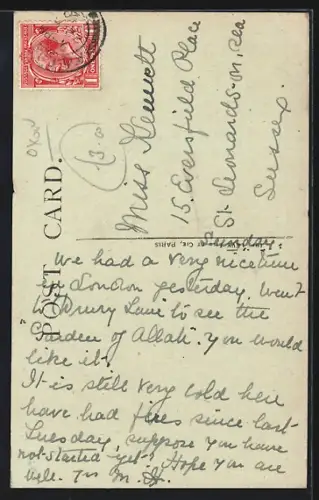 POST CARD.
Miss Hewett
15 Eversfield Place
St. Leonards-on-sea
Sussex.
OXON
13.0
ET CIE. PARIS
Sunday
We had a very nice time
in London yesterday. Went
to Drury Lane to see the
"Garden of Allah". You would
like it.
It is still very cold here
have had fires since last
Tuesday, suppose you have
not started yet? Hope you are
well. M.